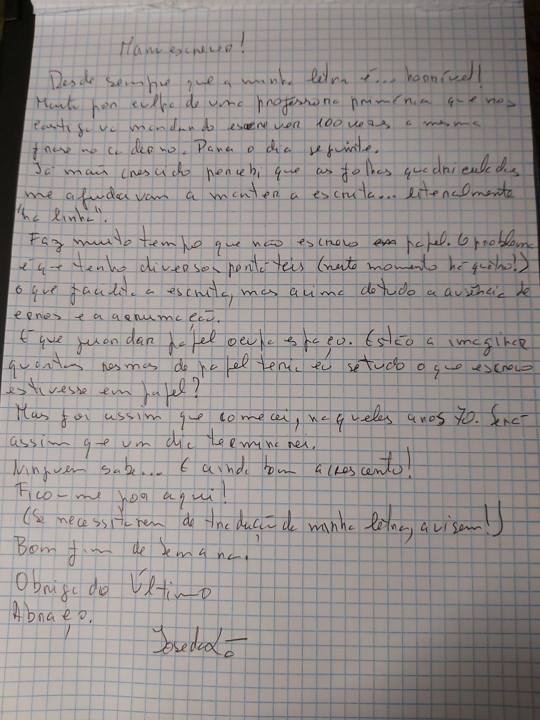 Manuescrevo!
Desde sempre que a minha letra é... horrível!
Muito por culpa de uma professora primária que nos
castigava mandando escrever 100 vezes a mesma
frase no caderno. Para o dia seguinte.
Já mais crescido percebi, que as folhas quadriculadas
me ajudavam a manter a escrita... literalmente
"na linha".
Faz muito tempo que não escrevo em papel. O problema
é que tenho diversos portáteis (neste momento há quatro!)
o que facilita a escrita, mas acima de tudo a ausência de
erros e a arrumação.
É que guardar papel ocupa espaço. Estão a imaginar
quantas resmas de papel teria eu se tudo o que escrevo
estivesse em papel?
Mas foi assim que comecei, naqueles anos 70. Será
assim que um dia terminarei.
Ninguém sabe... E ainda bem acrescento!
Fico-me por aqui!
(Se necessitarem de tradução da minha letra, avisem!)
Bom fim de semana!
Obrigado Último
Abraço.